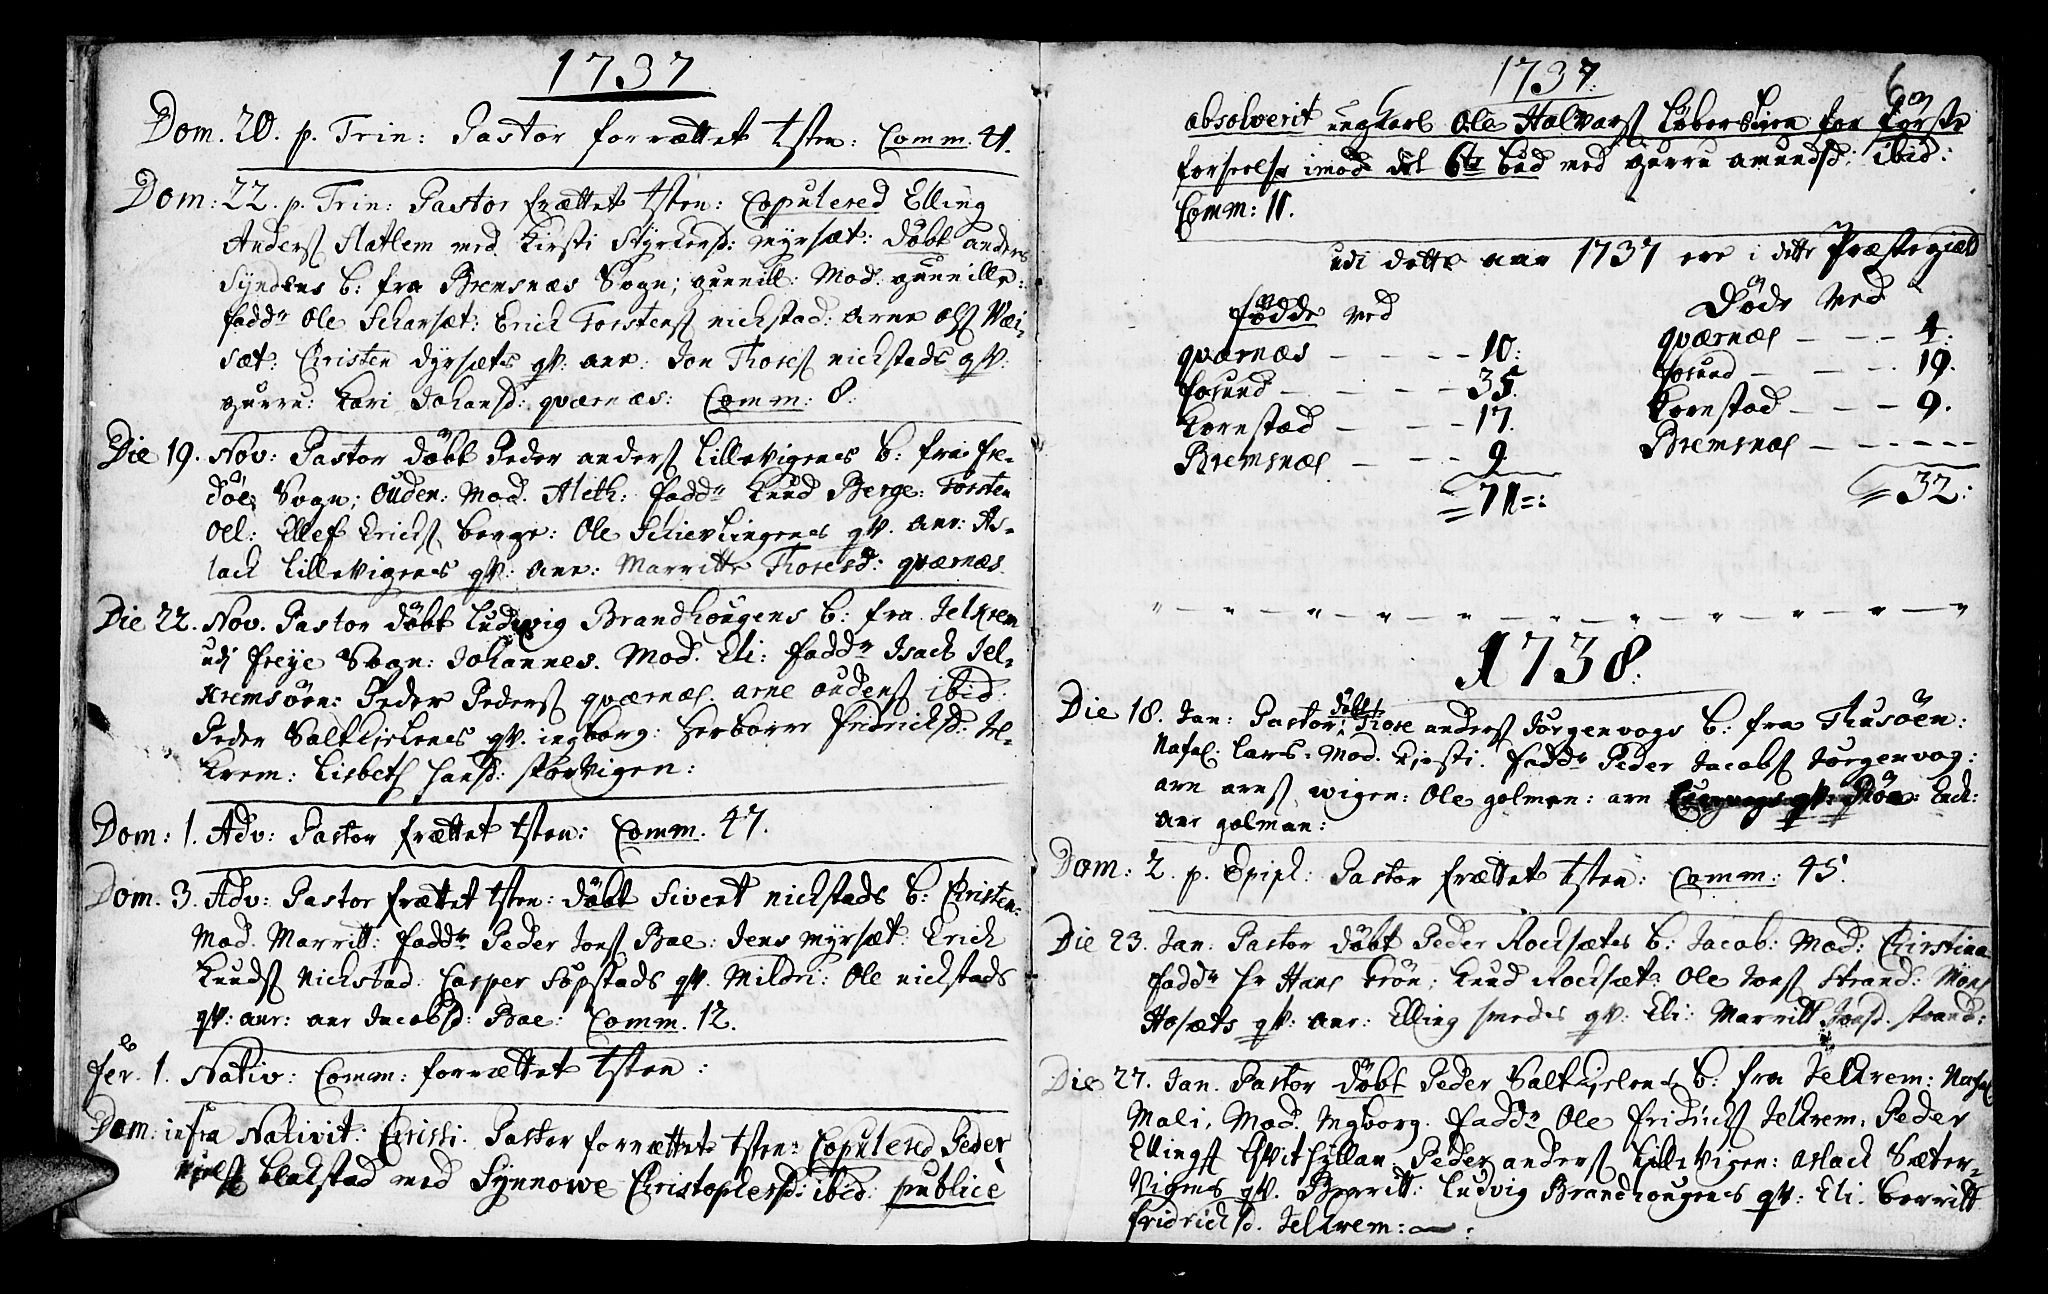 1737
Dom. 20. p. Trin: Pastor forrættet tsten: Comm. 41.
Dom: 22. p. Trin: Pastor frættet tsten: Copulered Elling
Anders Slatlem med Kirsti Styrkersd: Myrsæt: døbt anders
Syndens b: fra Bremsnæs Sogn; gunnill: Mod: gunnille:
fadd Ole Scharsæt: Erich Torstens nichstad: arne Ols Wæi-
sæt: Christen dyrsæts qv: ane: Jon Thores nichstads qv:
gurru: Kari Johansd: qværnæs: Comm: 8:
Die 19. Nov: Pastor døbt Peder anders Lillevigenes b: fra fre-
døe Sogn; Ouden: Mod. Aleth: fadd Knud Berge: Torsten
Oel: Ellef Erichs berge: Ole Schievlingenes qv. ane: As-
lach Lillevigenes qv: ane: Marritte Thoresd: qværnæs.
Die 22. Nov. Pastor døbt Ludevig Brandhougens b: fra Jelkrem
udj freye Sogn: Johannes. Mod. Eli: fadd Isach Jel-
kremsøen: Peder Peders qværnæs. arne oudens ibid:
Peder Saltkjelenes qv. ingborg: Herborre fridrichsd: Jel-
krem: Lisbeth hansd: storvigen:
Dom: 1. Adv: Pastor frættet tsten: Comm. 47.
Dom. 3. Adv: Pastor frættet tsten: døbt Sivert nichstads b: Christen:
Mod. Marritt: fadd Peder Jons Bae: Jens Myrsæt: Erich
Knuds Nichstad: Casper Sopstads qv. Mildri: Ole nichstads
qv: ane: ane Jacobsd: Bae: Comm. 12.
fer. 1. Nativ: Comm: forrættet tsten:
Dom: infra Nativit: Christi. Pastor forrættet tsten: Copulered Peder
Niels blakstad med Synnowe Christophersd: ibid: publice
1737. 6
absolverit ungkarl Ole Halvars for første
forseelse imod det 6te bud med gurru amundsd: ibid:
Comm: 11.
udi dette aar 1737 ere i dette Præstegield
fødde ved
qværnæs - - - - 10:
fosund - - - - 35.
Kornstad - - - - 17.
Bremsnæs - - - 9
71
Døde ved
qværnæs - - - 4:
fosund - - - 19.
Kornstad - - - 9.
Bremsnæs - - - - -
32:
1738:
Die 18. Jan: Pastor døbt Thore anders Jorgenvogs b: fra Thusøen:
Nafnl: Lars. Mod. Kirsti. fadd Peder Jacobs Jorgenvog:
arn arns wigen: Ole golman: arn
ane golman:
Dom: 2. p. Epiph: Pastor frættet tsten: Comm: 45.
Die 23. Jan: Pastor døbt Peder Rochsætes b: Jacob: Mod: Christina
fadd hr Hans Krøn; Knud Rochsæt: Ole Jons Strand: Mons
Hosæts qv: ane: Elling smedes qv: Eli: Marritt Jonsd. strand:
Die 27. Jan. Pastor døbt Peder Saltkjelens b: fra Jelkrem: Nafnl
Mali. Mod. Ingborg. fadd Ole fridrichs Jelkrem: Peder
Ellings Peder anders Lillevigen: aslach Sæter-
Vigens qv. Berritt: Ludvig Brandhougenes qv: Eli. berritt
fridrichsd. Jelkrem: